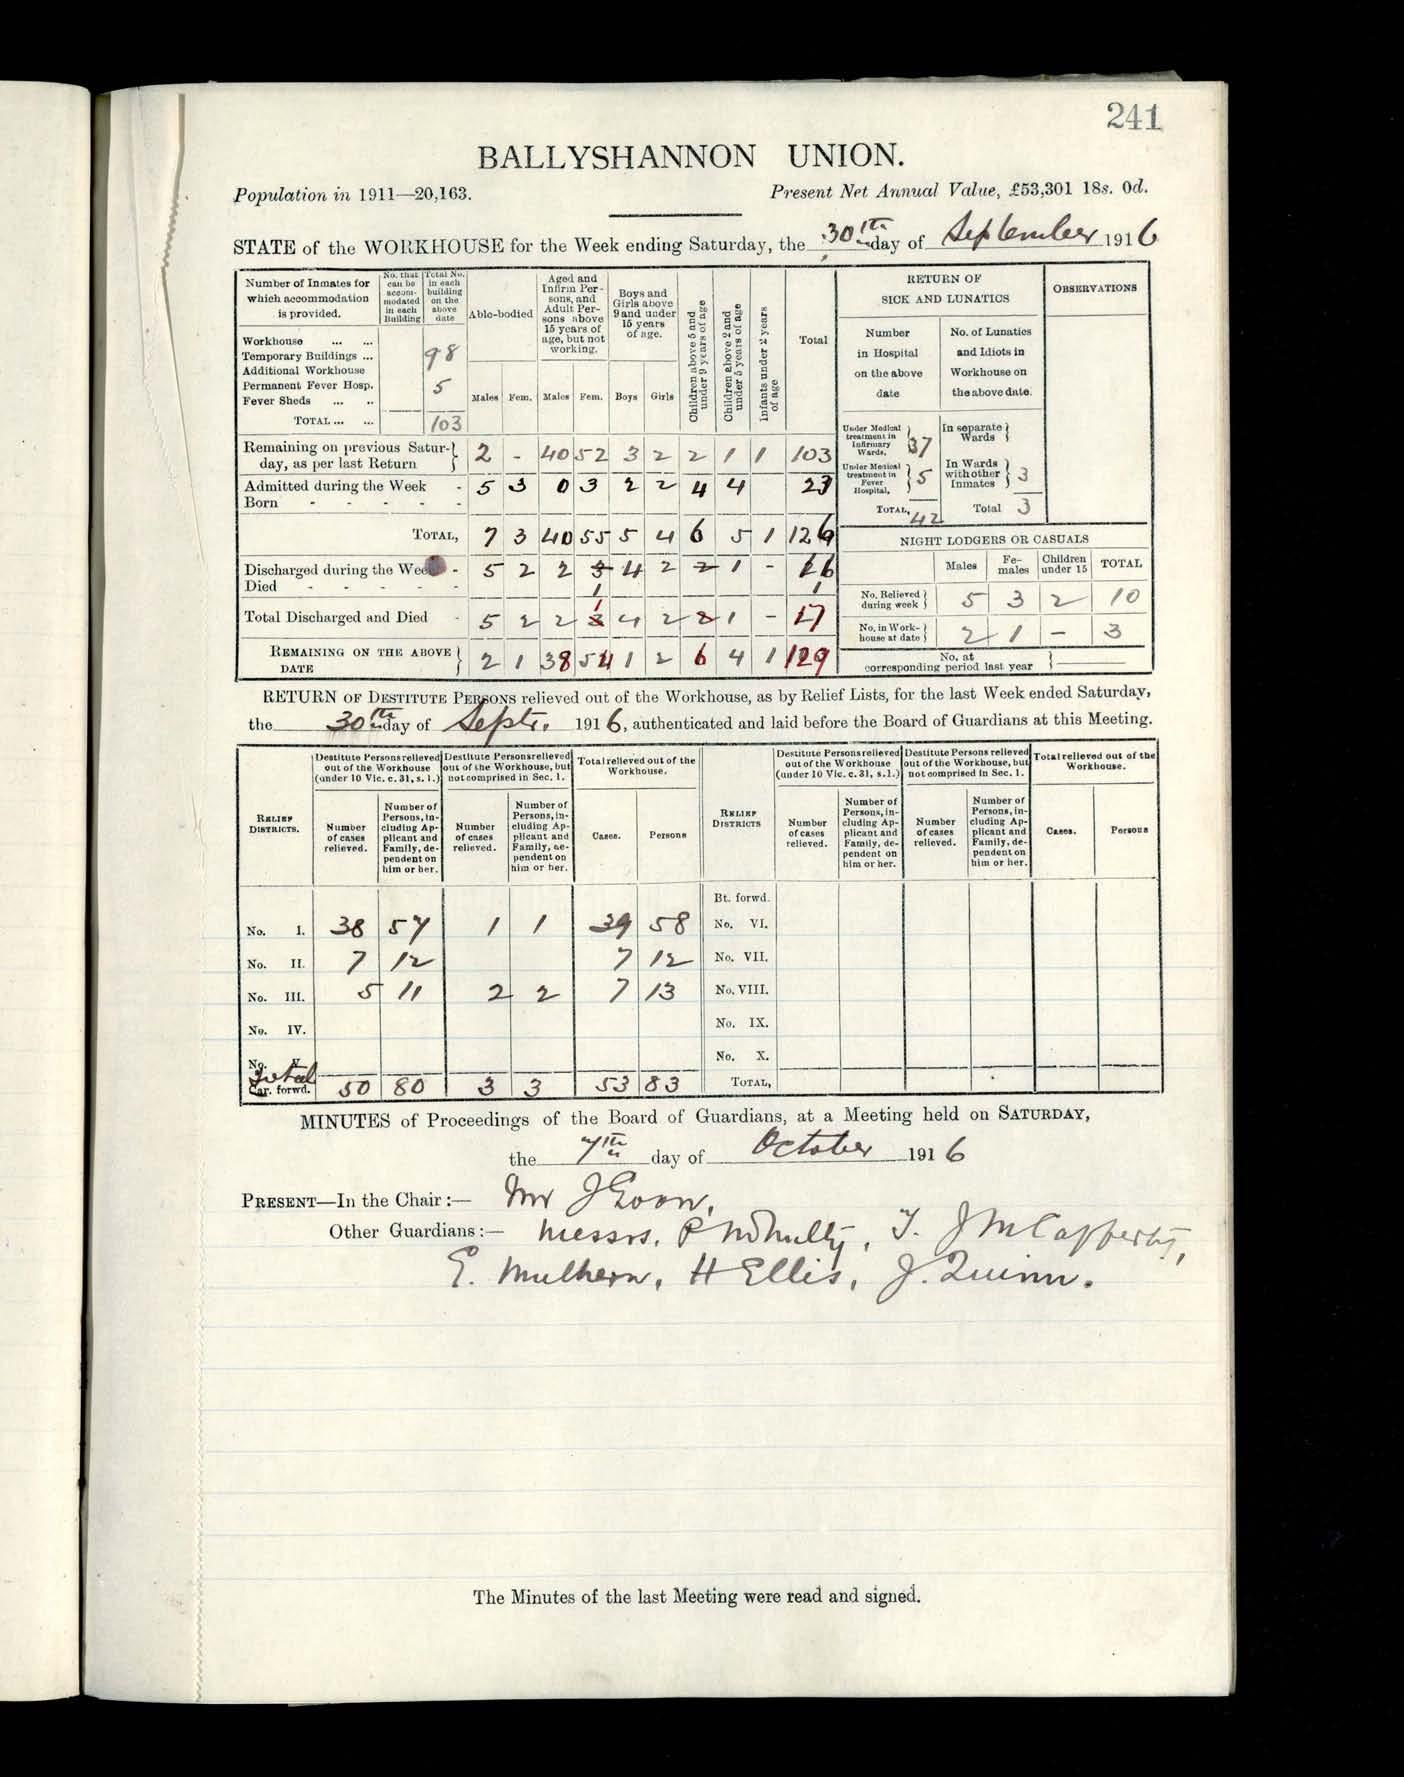 241
BALLYSHANNON UNION.
Population in 1911—20,163. Present Net Annual Value, £53,301 18s. 0d.
STATE of the WORKHOUSE for the Week ending Saturday, the 30th day of September 1916
Number of Inmates for which accommodation is provided. No. that can be accommodated in each Building Total No. in each building on the above date
Able-bodied Aged and Infirm Persons, and Adult Persons above 15 years of age, but not working. Boys and Girls above 9 and under 15 years of age. Children above 5 and under 9 years of age Children above 2 and under 5 years of age Infants under 2 years of age Total
Males Fem. Males Fem. Boys Girls
Workhouse ... ... 98
Temporary Buildings ...
Additional Workhouse
Permanent Fever Hosp. 5
Fever Sheds ... ..
TOTAL ... ... 103
Remaining on previous Saturday, as per last Return 2 - 40 52 3 2 2 1 1 103
Admitted during the Week - 5 3 0 3 2 2 4 4 23
Born - - - - -
TOTAL, 7 3 40 55 5 4 6 5 1 126
Discharged during the Week - 5 2 2 3 4 2 2 1 - 16
Died - - - - - 1 1
Total Discharged and Died - 5 2 2 1 4 2 2 1 - 17
REMAINING ON THE ABOVE DATE 2 1 38 54 1 2 6 4 1 109
RETURN OF
SICK AND LUNATICS
OBSERVATIONS
Number in Hospital on the above date
No. of Lunatics and Idiots in Workhouse on the above date.
Under Medical treatment in Infirmary Wards, 37
In separate Wards
Under Medical treatment in Fever Hospital, 5
In Wards with other Inmates 3
TOTAL, 42 Total 3
NIGHT LODGERS OR CASUALS
Males Females Children under 15 TOTAL
No. Relieved during week 5 3 2 10
No. in Workhouse at date 2 1 - 3
No. at corresponding period last year
RETURN OF DESTITUTE PERSONS relieved out of the Workhouse, as by Relief Lists, for the last Week ended Saturday,
the 30th day of Septr. 1916, authenticated and laid before the Board of Guardians at this Meeting.
RELIEF DISTRICTS.
Destitute Persons relieved out of the Workhouse (under 10 Vic. c. 31, s. 1.)
Destitute Persons relieved out of the Workhouse, but not comprised in Sec. 1.
Total relieved out of the Workhouse.
Number of cases relieved.
Number of Persons, including Applicant and Family, dependent on him or her.
Number of cases relieved.
Number of Persons, including Applicant and Family, dependent on him or her.
Cases. Persons
No. I. 38 57 1 1 39 58
No. II. 7 12 7 12
No. III. 5 11 2 2 7 13
No. IV.
No. V.
Total
Car. forwd. 50 80 3 3 53 83
RELIEF DISTRICTS
Destitute Persons relieved out of the Workhouse (under 10 Vic. c. 31, s.1.)
Destitute Persons relieved out of the Workhouse, but not comprised in Sec. 1.
Total relieved out of the Workhouse.
Number of cases relieved.
Number of Persons, including Applicant and Family, dependent on him or her.
Number of cases relieved.
Number of Persons, including Applicant and Family, dependent on him or her.
Cases. Persons
Bt. forwd.
No. VI.
No. VII.
No. VIII.
No. IX.
No. X.
TOTAL,
MINUTES of Proceedings of the Board of Guardians, at a Meeting held on SATURDAY,
the 7th day of October 1916
PRESENT—In the Chair:— Mr J
Other Guardians:— Messrs. P McNulty, T. J McCafferty,
E. Mulhern, H Ellis, J. Quinn.
The Minutes of the last Meeting were read and signed.